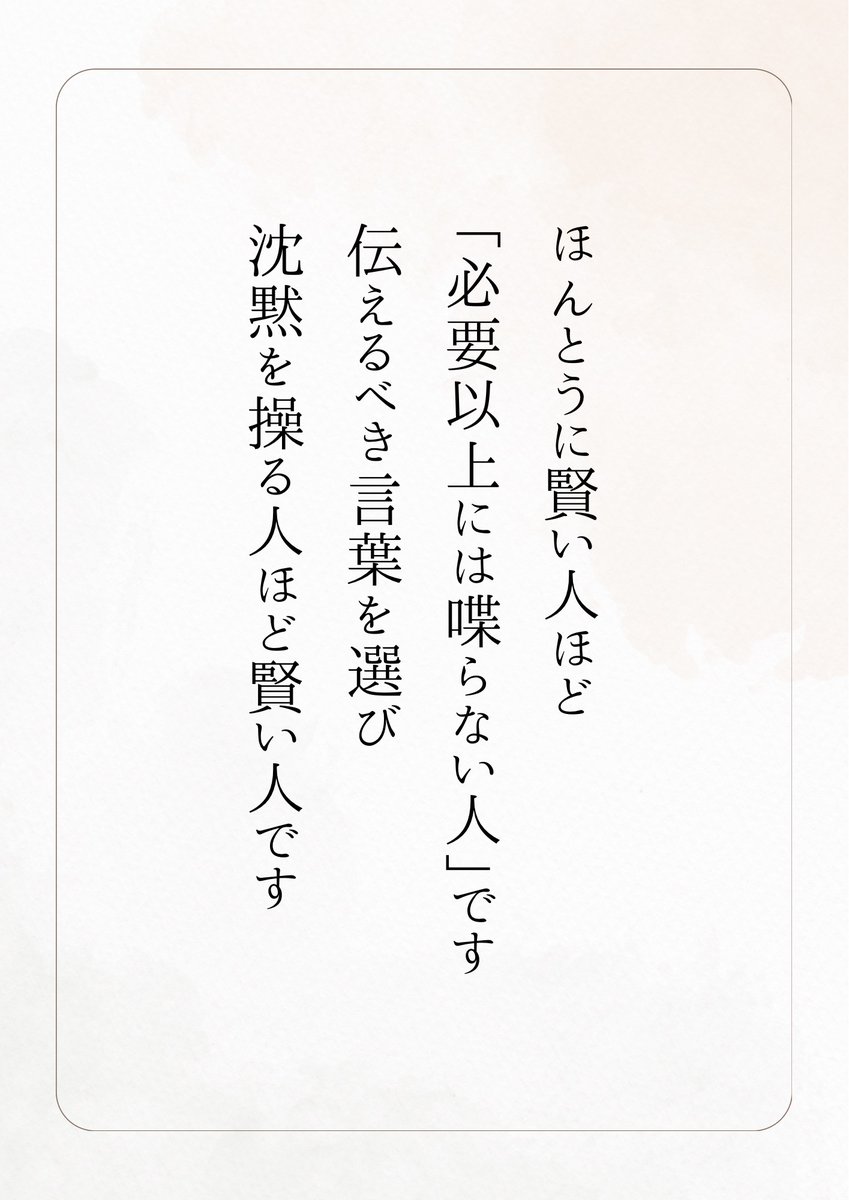 ほんとうに賢い人ほど
「必要以上には喋らない人」です
伝えるべき言葉を選び
沈黙を操る人ほど賢い人です